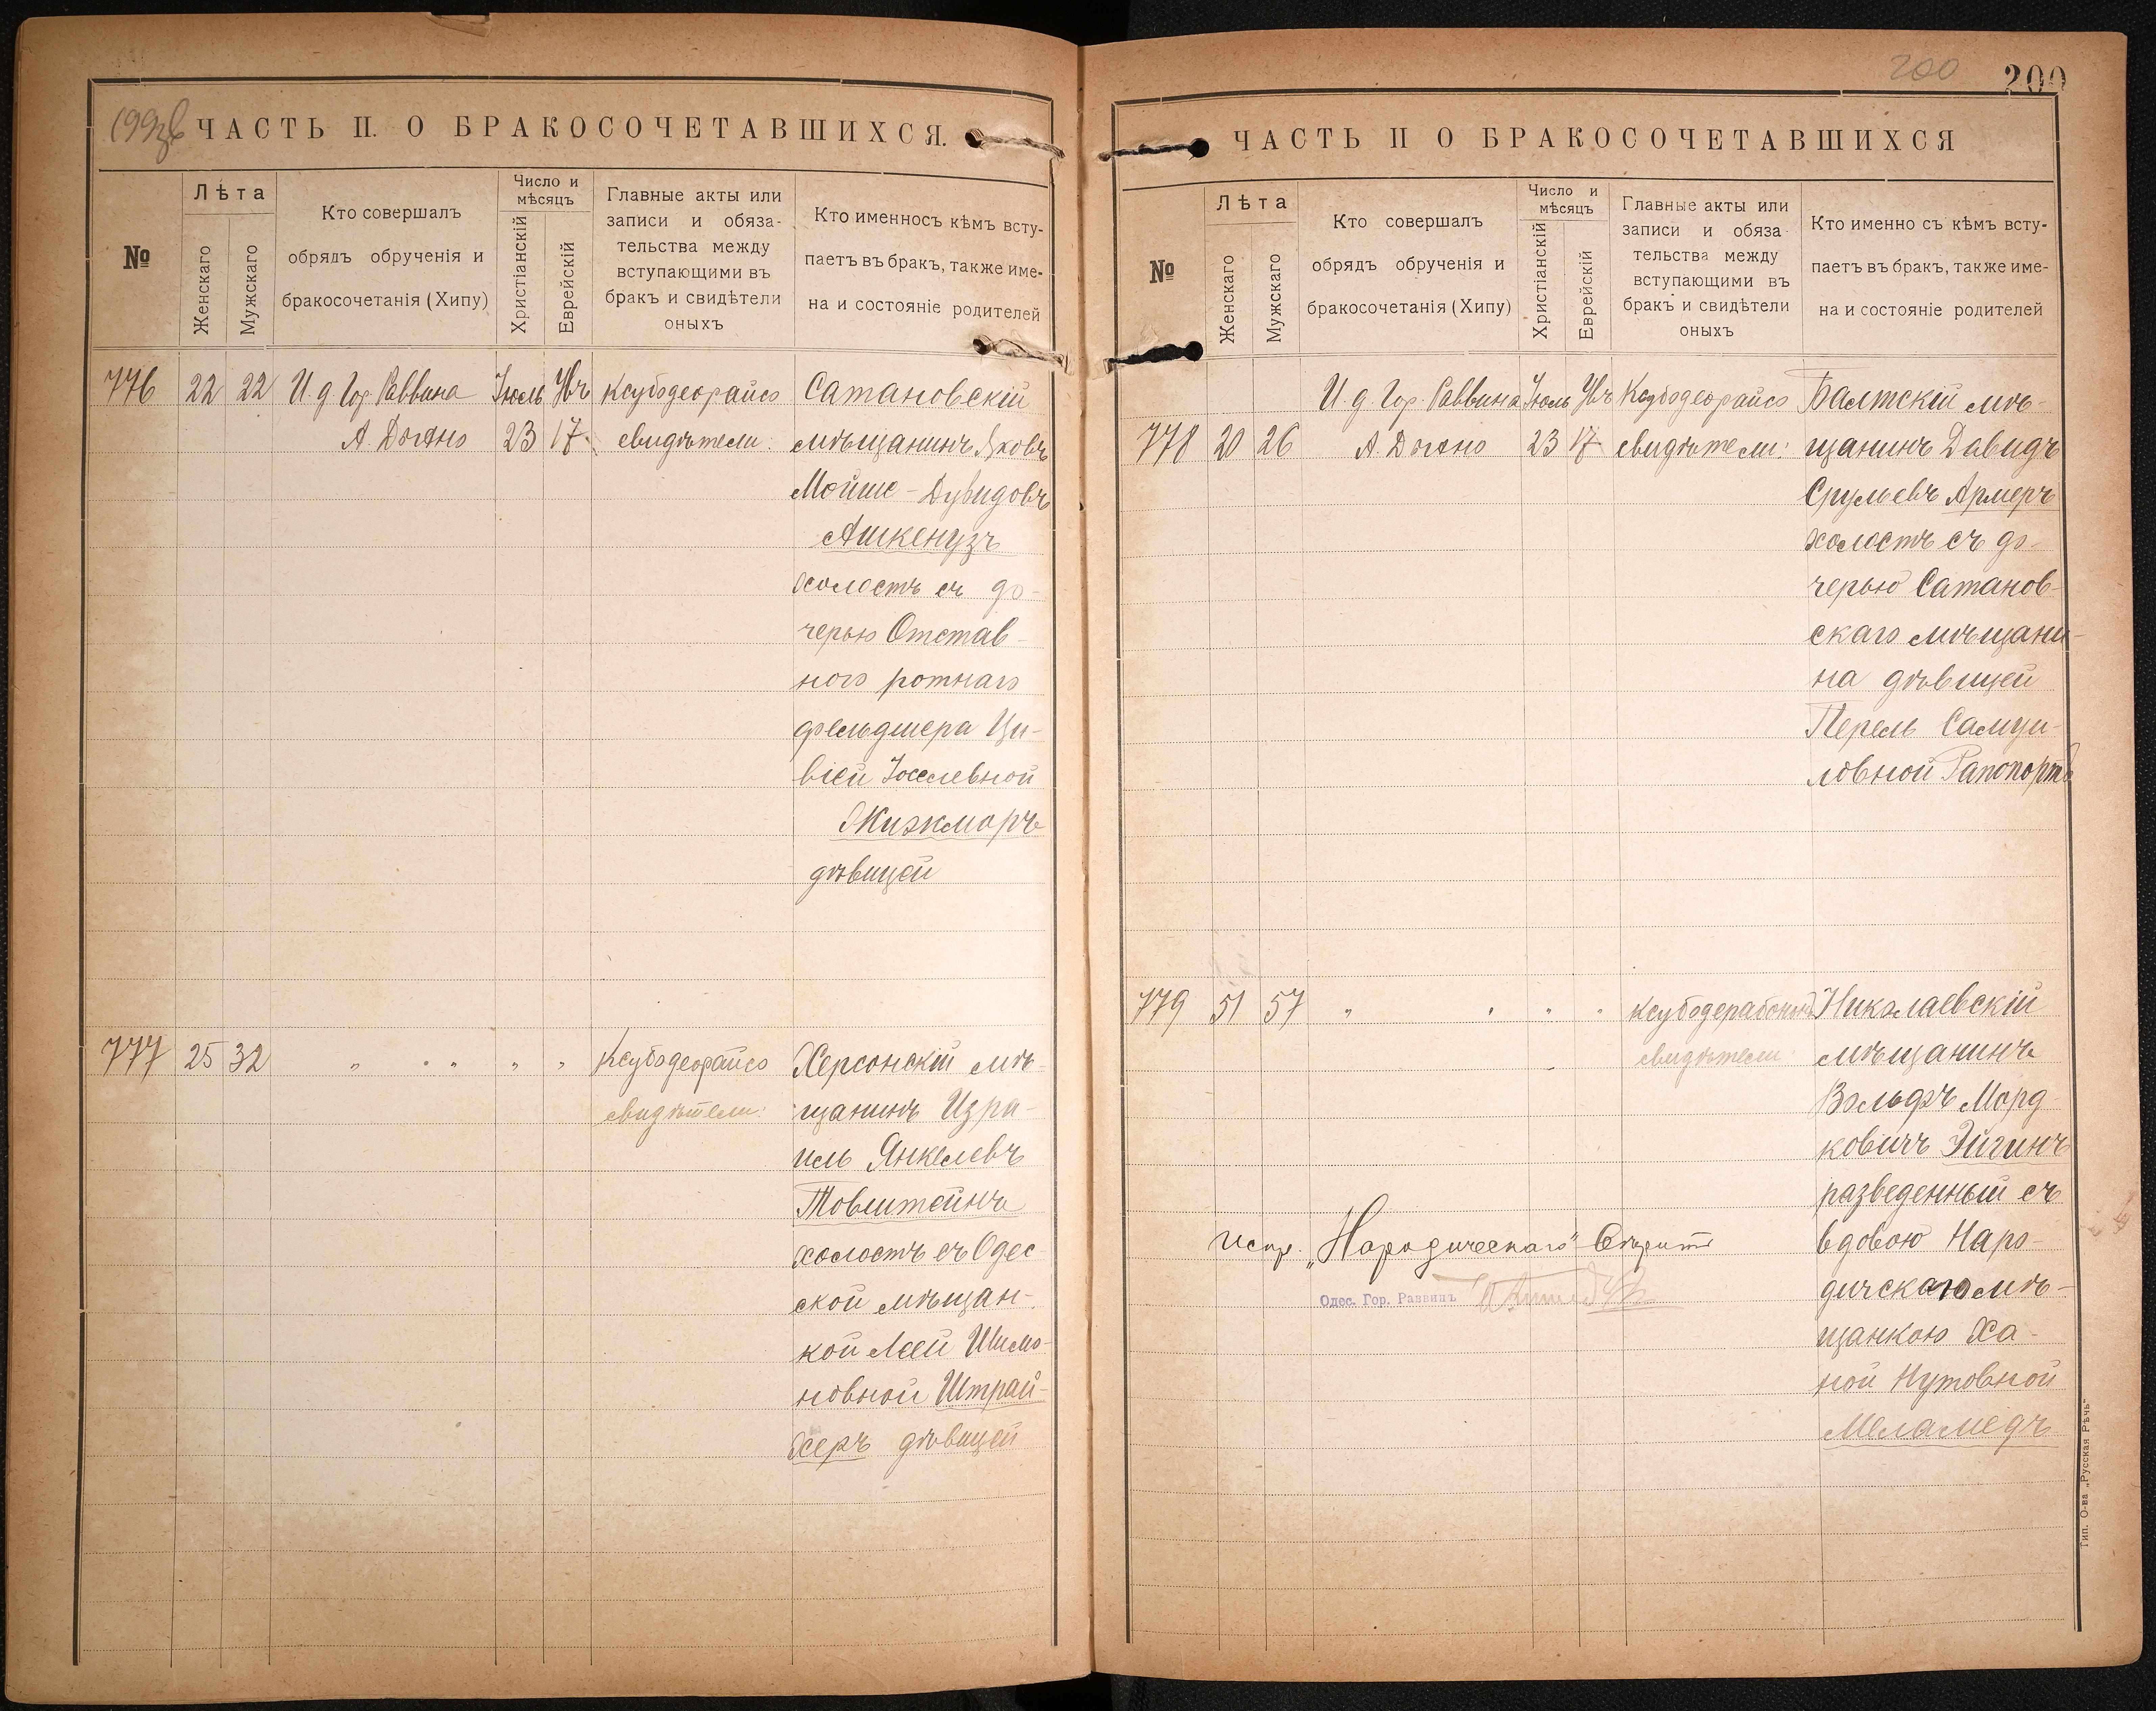 199зв
ЧАСТЬ II. О БРАКОСОЧЕТАВШИХСЯ.
№
Лѣта
Женскаго
Мужскаго
Кто совершалъ
обрядъ обрученія и
бракосочетанія (Хипу)
Число и
мѣсяцъ
Христіанскій
Еврейскій
Главные акты или
записи и обяза-
тельства между
вступающими въ
бракъ и свидѣтели
оныхъ
Кто именносъ кѣмъ всту-
паетъ въ бракъ, также име-
на и состояніе родителей
776 22 22 И. д. Гор. Раввина Іюль Увъ Ксубодеорайсо Сатановскій
23 17 свидѣтели: мѣщанинъ Яковъ
Мойше-Дувидовъ
Ашкенузъ
холостъ съ до-
черью Отстав-
ного ротнаго
фельдшера Ци-
віей Іоселевной
Жизморъ
дѣвицей
777 25 32 " " " " " Ксубодеорайсо Херсонскій мѣ-
свидѣтели: щанинъ Изра-
иль Янкелевъ
Товштейнъ
холостъ съ Одес
ской мѣщан-
кой Леей Шимо-
новной Штрай-
херъ дѣвицей
200
200
ЧАСТЬ II О БРАКОСОЧЕТАВШИХСЯ
№
Лѣта
Женскаго
Мужскаго
Кто совершалъ
обрядъ обрученія и
бракосочетанія (Хипу)
Число и
мѣсяцъ
Христіанскій
Еврейскій
Главные акты или
записи и обяза-
тельства между
вступающими въ
бракъ и свидѣтели
оныхъ
Кто именно съ кѣмъ всту-
паетъ въ бракъ, также име-
на и состояніе родителей
И. д. Гор. Раввина Іюль Увъ Ксубодеорайсо Балтскій мѣ-
778 20 26 23 17 свидѣтели: щанинъ Давидъ
Срульевъ Армеръ
холостъ съ до-
черью Сатанов-
скаго мѣщани-
на дѣвицей
Перель Самуи-
ловной Рапопортъ
779 51 57 " " " " Николаевскій
свидѣтели: мѣщанинъ
Вольфъ Морд
ковичъ Эйгинъ
разведенный съ
вдовою Наро-
дичскаго мѣ-
щанкою Ха-
ной Нутовной
Меламедъ
испр. „Народическаго"
Одес. Гор. Раввинъ
Тип. О-ва „Русская Рѣчь"